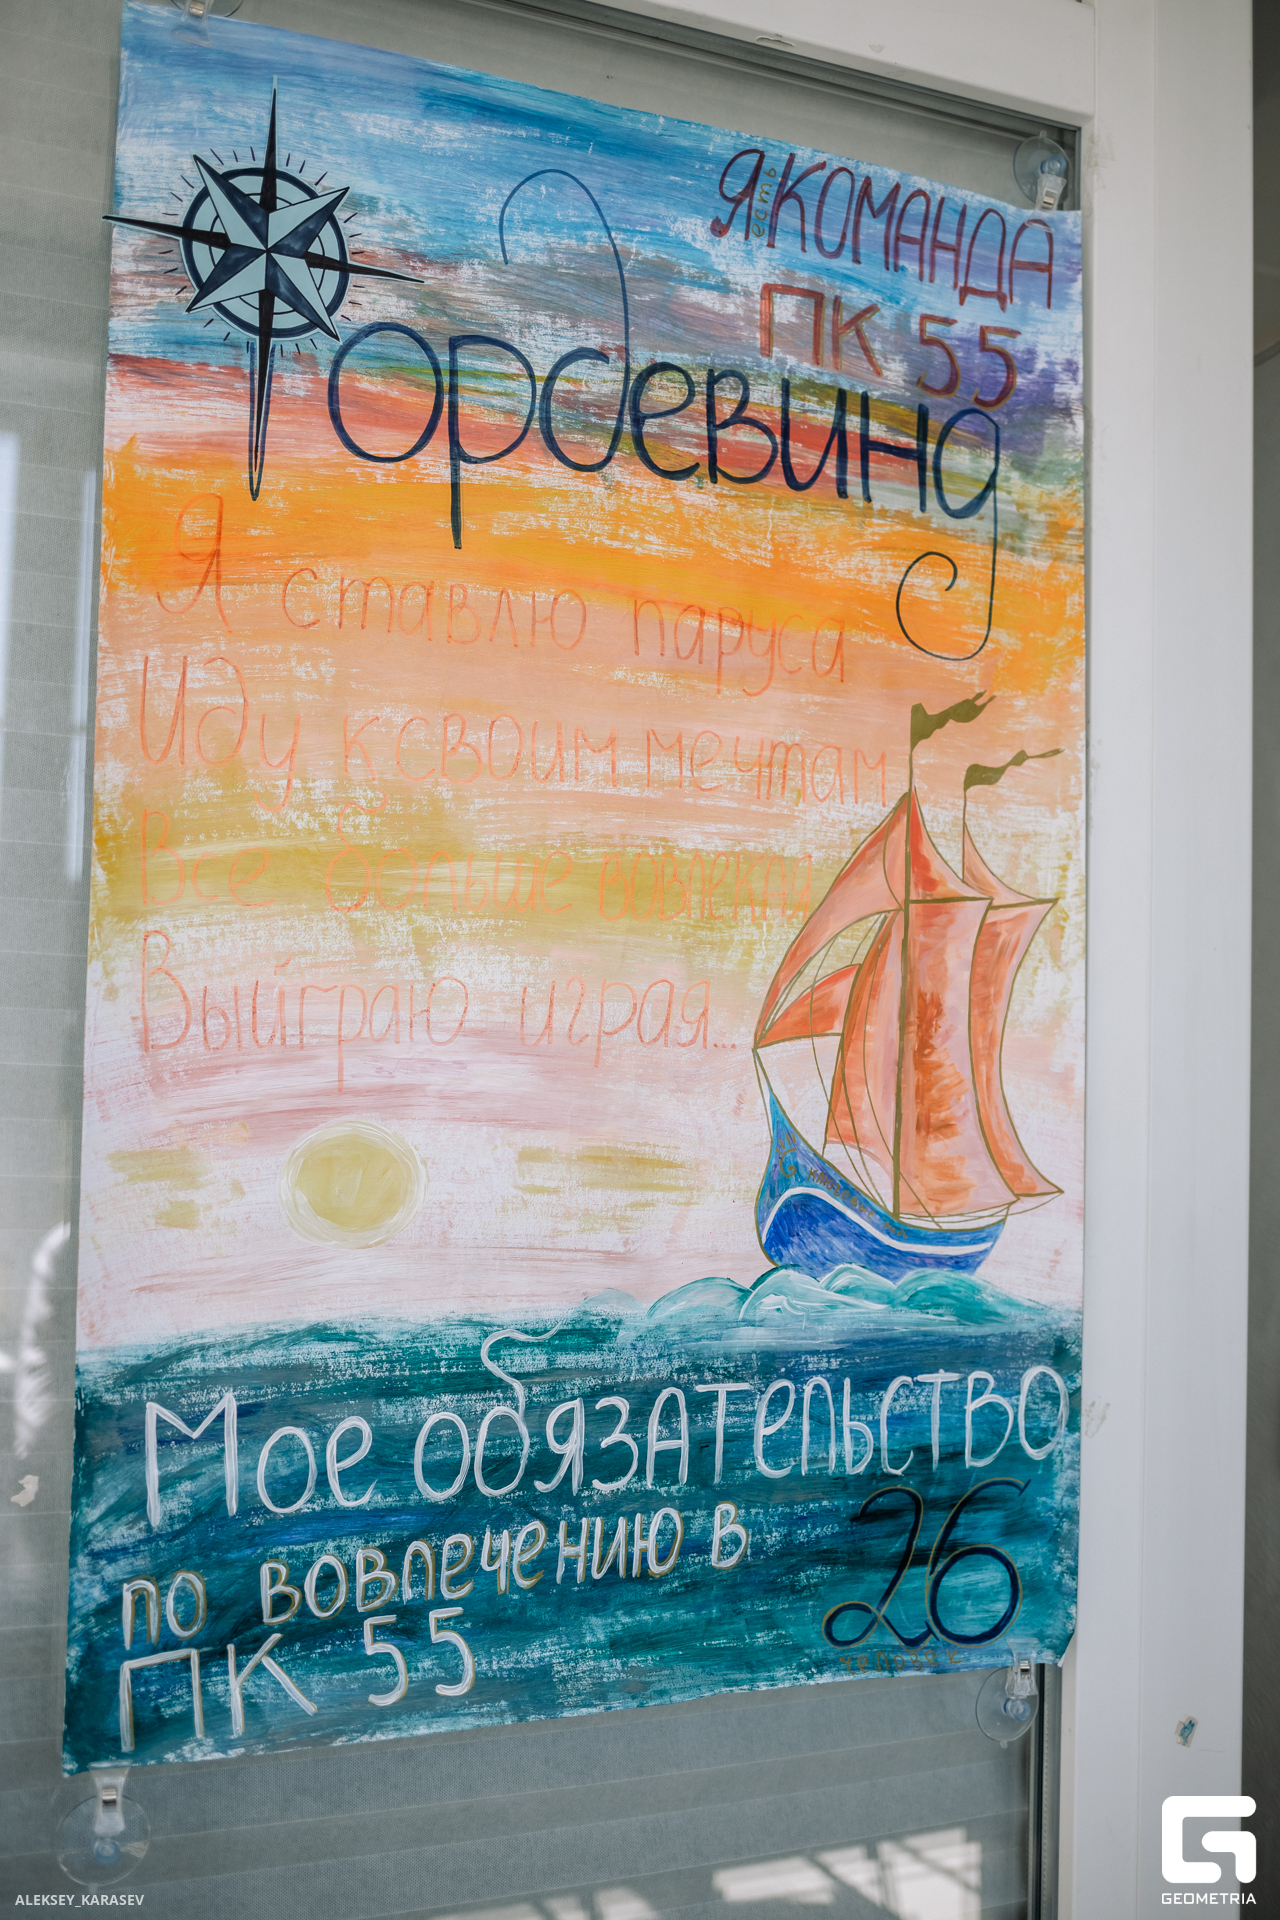 Я есть КОМАНДА
ПК 55
Фордевинд
Я ставлю паруса
Иду к своим мечтам
Все больше вовлекая
Выйграю играя...
Мое обязательство
по вовлечению в
ПК 55
26
человек
ALEKSEY_KARASEV
GEOMETRIA